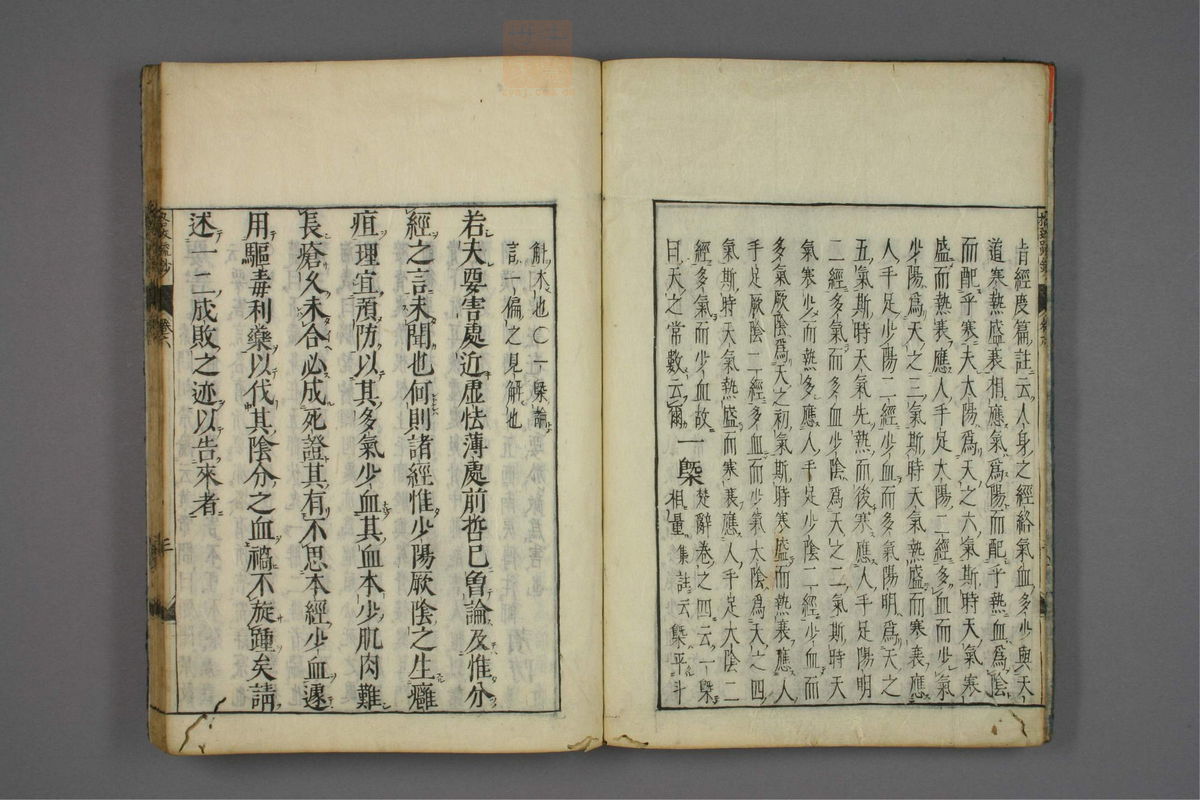 肯經度篇註云人身之經絡氣血多少與天
道寒熱盛衰相應氣爲陽而配乎熱血爲陰
而配乎寒夫太陽爲天之六氣斯時天氣寒
盛而熱衰應人手足太陽二經多血而少氣
少陽爲天之三氣斯時天氣熱盛而寒衰應
人手足少陽二經少血而多氣陽明爲天之
五氣斯時天氣先熱而後寒應人手足陽明
二經多氣而多血少陰爲天之二氣斯時天
氣寒少而熱多應人手足少陰二經少血而
多氣厥陰爲天之初氣斯時寒盛而熱衰應人
手足厥陰二經多血而少氣太陰爲天之四
氣斯時天氣熱盛而寒衰應人手足太陰二
經多氣而少血故
曰天之常數云爾一槩楚辭卷之四云一槩
相量集註云槩平斗
斛木也〇一槩論
言一偏之見解也
若夫要害處近虛怯薄處前哲已曾論及惟分
經之言未聞也何則諸經惟少陽厥陰之生癰
疽理宜預防以其多氣少血其血本少肌肉難
長瘡久未合必成死證其有不思本經少血遽
用驅毒利藥以伐其陰分之血禍不旋踵矣請
述一二成敗之迹以告來者
卷六